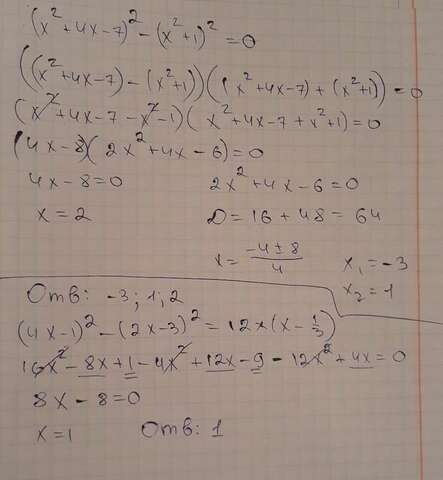 (x²+4x-7)² - (x²+1)² = 0
((x²+4x-7) - (x²+1))((x²+4x-7) + (x²+1)) = 0
(x²+4x-7-x²-1)(x²+4x-7+x²+1)=0
(4x-8)(2x²+4x-6)=0
4x-8=0 2x²+4x-6=0
x=2 D=16+48=64
x=(-4±8)/4 x₁=-3
x₂=1
Отв: -3; 1; 2
(4x-1)² - (2x-3)² = 12x(x-1/3)
16x²-8x+1-4x²+12x-9-12x²+4x=0
8x-8=0
x=1 Отв: 1